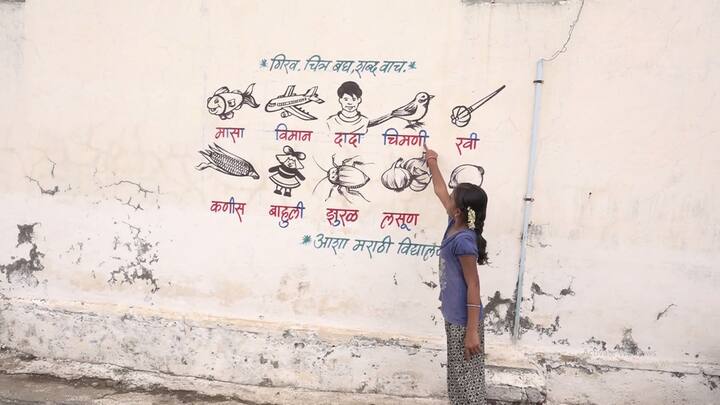 * गिरव. चित्र बघ, शब्द वाच. *
मासा विमान दादा चिमणी रवी
कणीस बाहुली झुरळ लसूण
* आशा मराठी